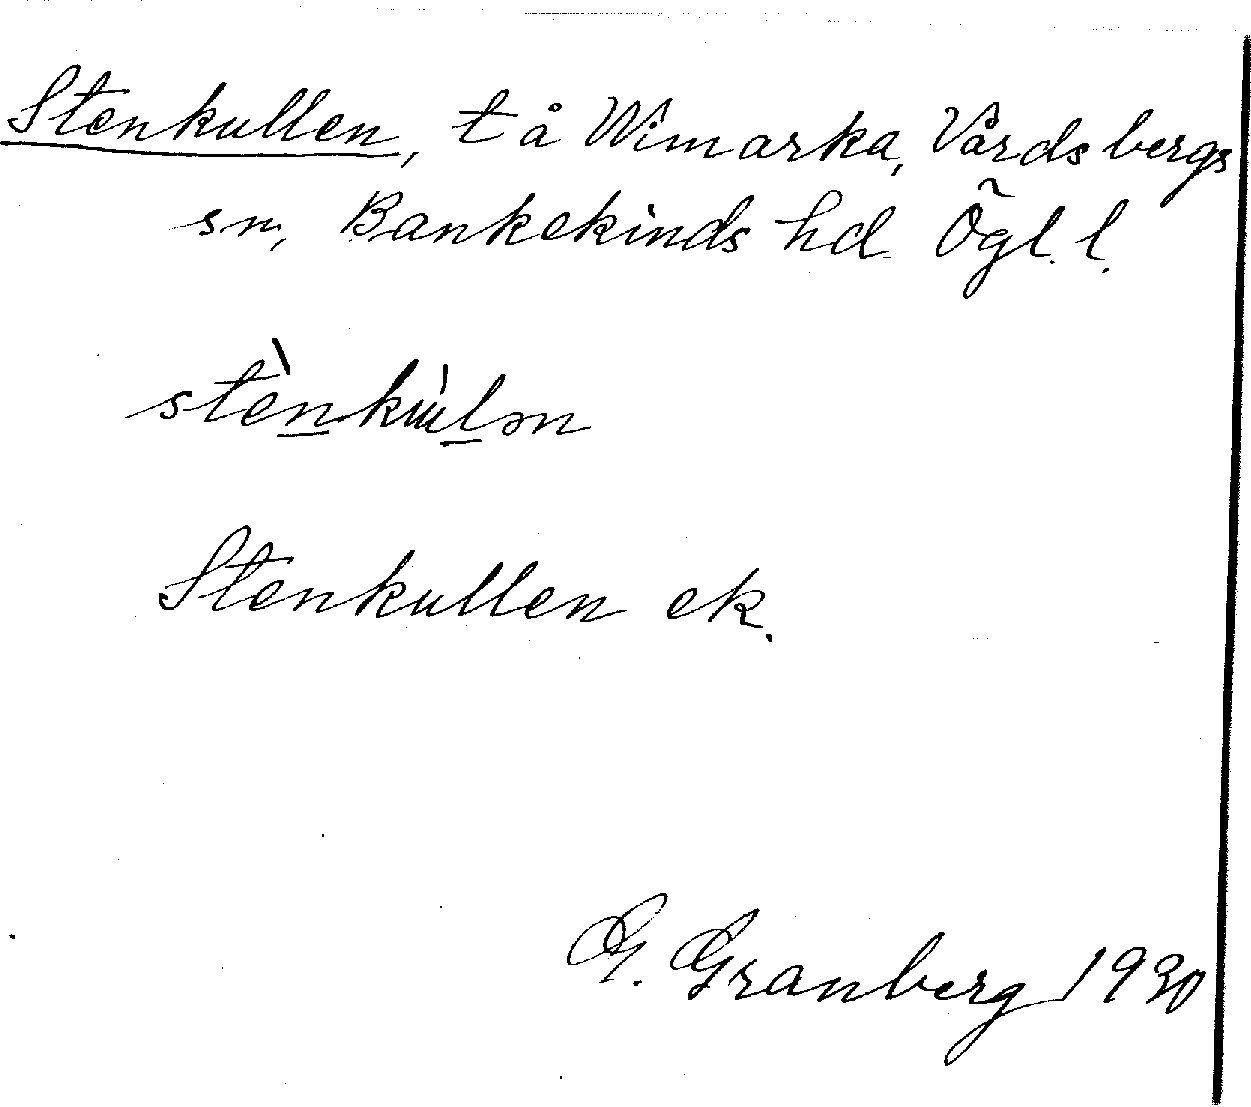 Stenkullen, t å Wimarka, Vårdsbergs
sn, Bankekinds hd Ögl. l.
stènku̇lən
Stenkullen ek.
G. Granberg 1930